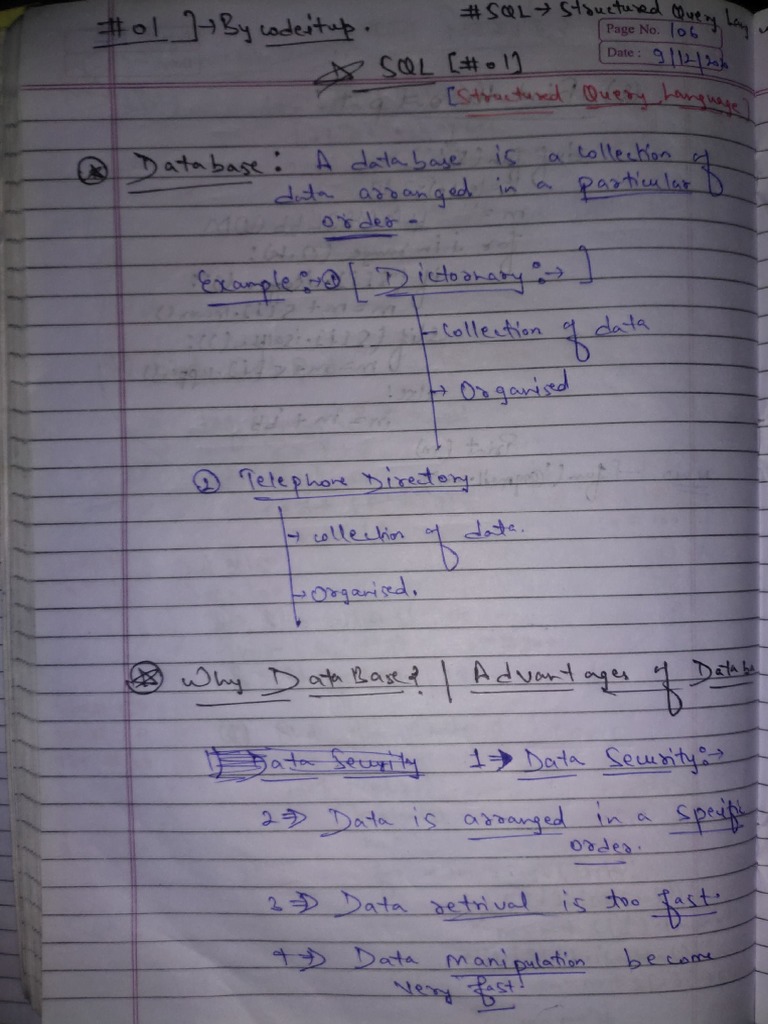 #01 ]→By codeitup.
#SQL → Structured Query Lang
Page No. 106
Date: 9/12/20
SQL [#01]
[Structured Query Language]
Database: A database is a collection of
data arranged in a particular
order-
Example:→① [Dictornary:→]
Collection of data
→ Organised
② Telephone Directory
→ collection of data.
→ Organised.
Why DataBase? | Advantages of Datab
1⇒ Data Security 1⇒ Data Security:→
2⇒ Data is arranged in a specifi
order.
3⇒ Data retrival is too fast.
4⇒ Data manipulation become
very fast.